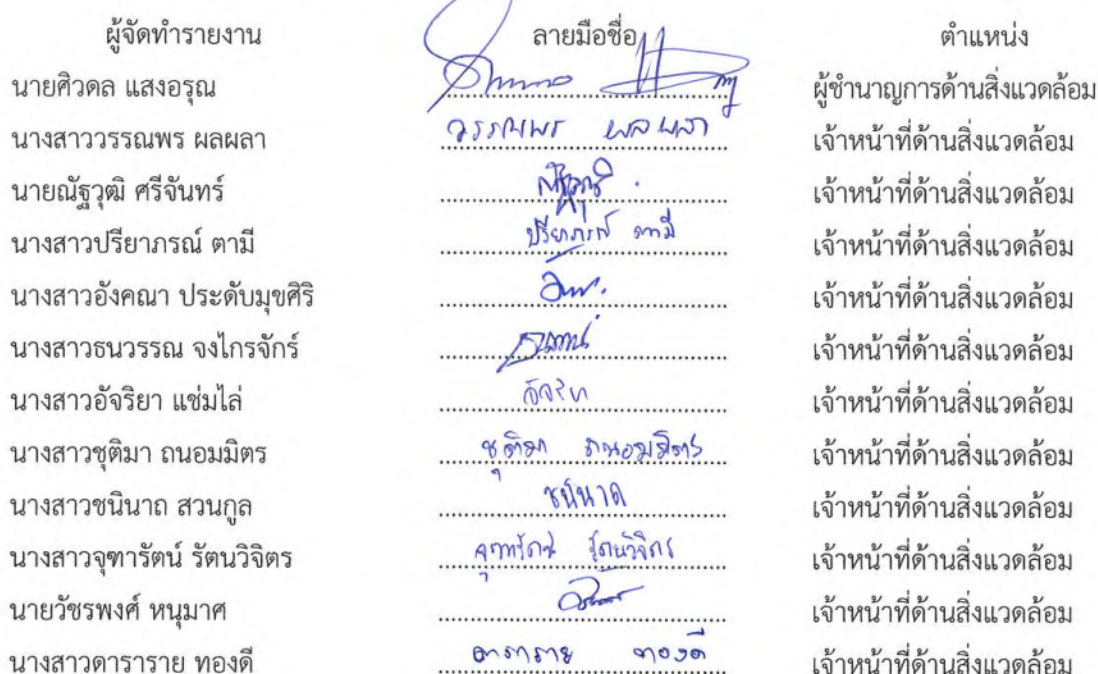 ผู้จัดทำรายงาน ลายมือชื่อ ตำแหน่ง
นายศิวดล แสงอรุณ ผู้ชำนาญการด้านสิ่งแวดล้อม
นางสาววรรณพร ผลผลา วรรณพร ผลผลา เจ้าหน้าที่ด้านสิ่งแวดล้อม
นายณัฐวุฒิ ศรีจันทร์ ณัฐวุฒิ เจ้าหน้าที่ด้านสิ่งแวดล้อม
นางสาวปรียาภรณ์ ตามี ปรียาภรณ์ ตามี เจ้าหน้าที่ด้านสิ่งแวดล้อม
นางสาวอังคณา ประดับมุขศิริ เจ้าหน้าที่ด้านสิ่งแวดล้อม
นางสาวธนวรรณ จงไกรจักร์ เจ้าหน้าที่ด้านสิ่งแวดล้อม
นางสาวอัจริยา แช่มไล่ อัจริยา เจ้าหน้าที่ด้านสิ่งแวดล้อม
นางสาวชุติมา ถนอมมิตร ชุติมา ถนอมมิตร เจ้าหน้าที่ด้านสิ่งแวดล้อม
นางสาวชนินาถ สวนกูล ชนินาถ เจ้าหน้าที่ด้านสิ่งแวดล้อม
นางสาวจุฑารัตน์ รัตนวิจิตร จุฑารัตน์ รัตนวิจิตร เจ้าหน้าที่ด้านสิ่งแวดล้อม
นายวัชรพงศ์ หนุมาศ เจ้าหน้าที่ด้านสิ่งแวดล้อม
นางสาวดาราราย ทองดี ดาราราย ทองดี เจ้าหน้าที่ด้านสิ่งแวดล้อม